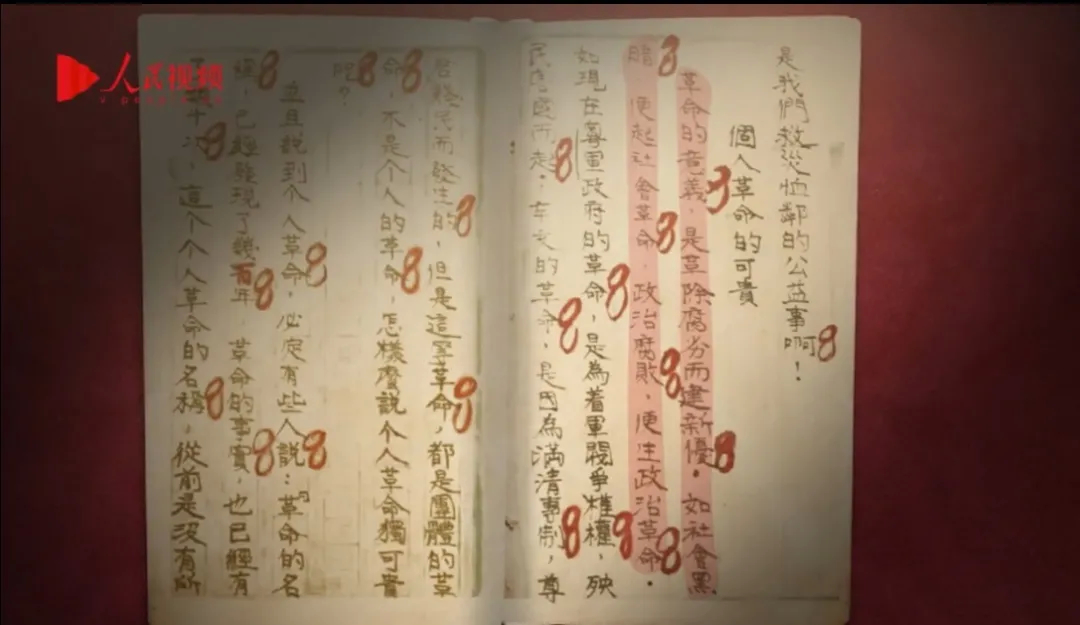 人民视频
v.people.cn
是我們救災恤鄰的公益事啊！
個人革命的可貴
革命的意義，是革除腐劣而建新優。如社會黑
暗，便起社會革命，政治腐敗，便生政治革命。
如現在軍政府的革命，是為着軍閥爭權，殃
民而起。的革命，是因為滿清專制，尊
君賤民而發生的，但是這革命，都是團體的革
命，不是个人的革命，怎樣麼說个人革命獨可貴
呢？
並且說到个人革命，必定有些人說：革命的名
已經發現了幾百年，革命的事實，也已經有
了十次，這个个人革命的名稱，從前是沒有所